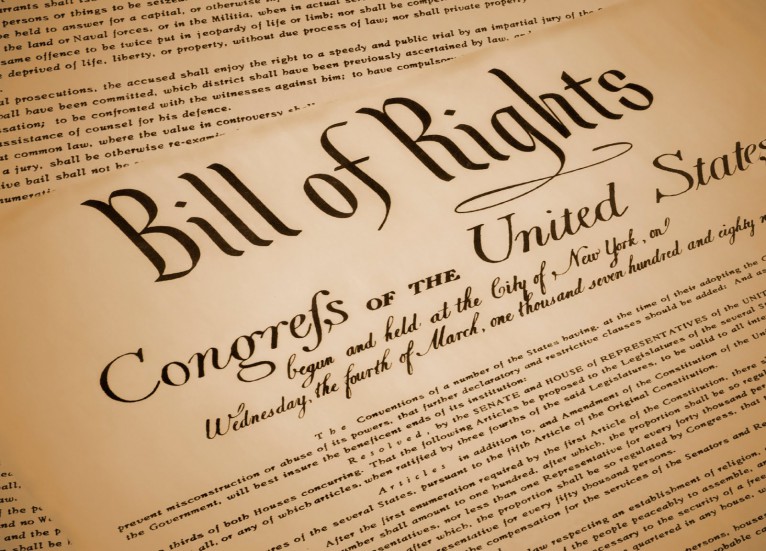 arrants shall
persons or things to be seized
be held to answer for a capital, or otherwise
the land or Naval forces, or in the Militia, when in actual
same offence to be twice put in jeopardy of life or limb; nor shall be
deprived of life, liberty, or property, without due process of law; nor shall private property
al prosecutions, the accused shall enjoy the right to a speedy and public trial by an impartial jury of the
all have been committed, which district shall have been previously ascertained by law, and
sation; to be confronted with the witnesses against him; to have compulsory
assistance of counsel for his defence.
at common law, where the value in controversy
a jury, shall be otherwise
ive bail shall not be
Bill of Rights
Congreſs OF THE United States
begun and held at the City of New York, on
Wednesday, the fourth of March, one thousand seven hundred and eighty
The Conventions of a number of the States having, at the time of their adopting the
prevent misconstruction or abuse of its powers, that further declaratory and restrictive clauses should be added: And as
the Government, will best insure the beneficent ends of its institution:
Resolved, by the SENATE and HOUSE of REPRESENTATIVES of the
thirds of both Houses concurring. That the following Articles be proposed to the Legislatures of the several
all, or any of which articles, when ratified by three fourths of the said Legislatures, to be valid to all
Articles in addition to, and Amendment of the Constitution of the
ures of the several States, pursuant to the fifth Article of the Original Constitution.
After the first enumeration required by the first Article of the Constitution, there
number shall amount to one hundred, after which, the proportion shall be so
entatives, nor less than one Representative for every forty thousand
after which, the proportion shall be so regulated by Congress, that
resentative for every fifty thousand persons.
the compensation for the services of the Senators and
law respecting an establishment of religion,
the people peaceably to assemble,
cessary to the security of a free
quartered in any house,
persons, houses